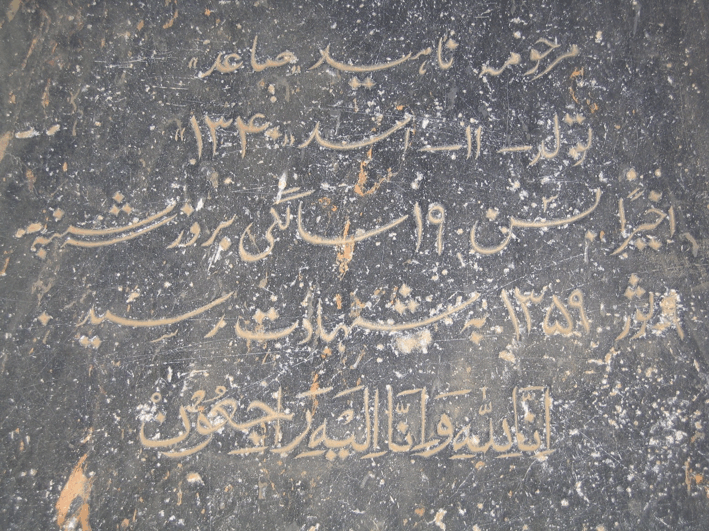 مرحومه ناهید «صاعد»
تولد - ۱۱ - اسد «۱۳۴۰»
اخیراً بسن ۱۹ سالگی بروز شنبه
۹ ثور ۱۳۵۹ به شهادت رسید
اِنّا لِلّٰهِ وَاِنَّا اِلَیْهِ رَاجِعُوْنْ